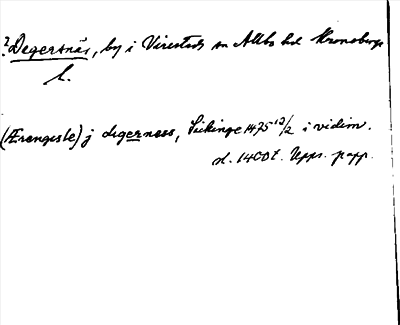 ? Degersnäs, by i Virestads sn Allbo hd Kronobergs
l.
(Ærengisle) j degernæss, Sickinge 1475 12/2 i vidim.
sl. 1400 t. Upps. papp.